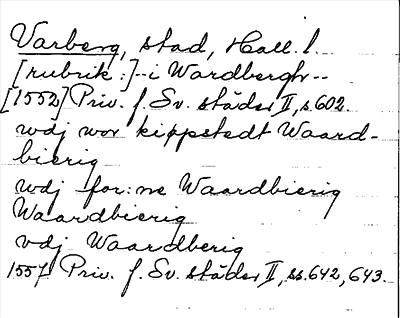 Varberg, stad, Hall. l.
[rubrik:] -- i Wardbergh --
[1552] Priv. f. Sv. städer II, s. 602.
wdj wor kippstedt Waard-
bierig
wdj for:ne Waardbierig
Waardbierig
vdj Waardberig
1557 Priv. f. Sv. städer II, ss. 642, 643.